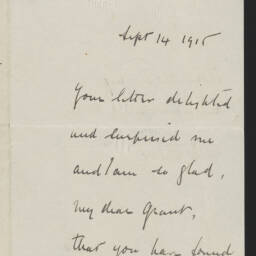 Sept 14 1915
Your letter delighted
and surprised me
and I am so glad,
my dear Grant,
that you have found